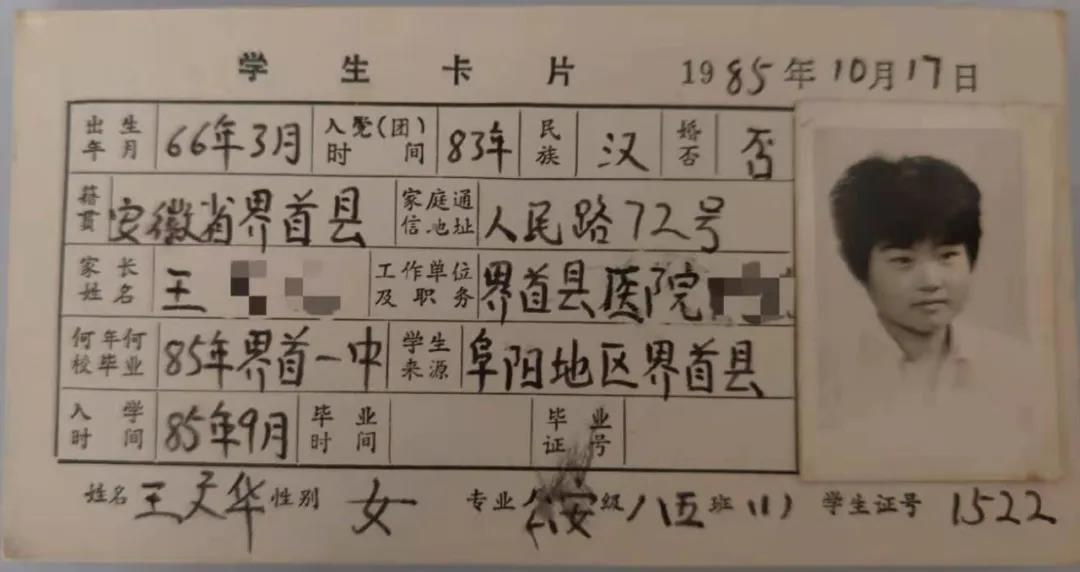 学生卡片 1985年10月17日
出生年月 66年3月 入党(团)时间 83年 民族 汉 婚否 否
籍贯 安徽省界首县 家庭通信地址 人民路72号
家长姓名 王 工作单位及职务 界首县医院
何年何校毕业 85年界首一中 学生来源 阜阳地区界首县
入学时间 85年9月 毕业时间 毕业证号
姓名 王天华 性别 女 专业 公安 级 八五 班 (1) 学生证号 1522